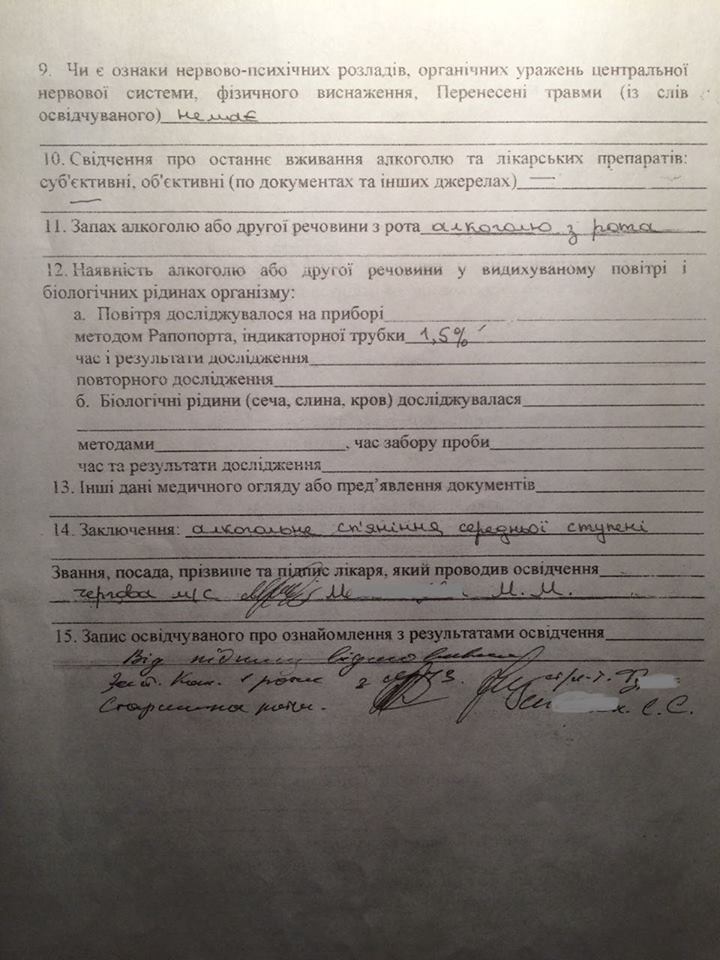 9. Чи є ознаки нервово-психічних розладів, органічних уражень центральної
нервової системи, фізичного виснаження, Перенесені травми (із слів
освідчуваного) немає
10. Свідчення про останнє вживання алкоголю та лікарських препаратів:
суб'єктивні, об'єктивні (по документах та інших джерелах) —
—
11. Запах алкоголю або другої речовини з рота алкоголю з рота
12. Наявність алкоголю або другої речовини у видихуваному повітрі і
біологічних рідинах організму:
а. Повітря досліджувалося на приборі
методом Рапопорта, індикаторної трубки 1,5%
час і результати дослідження
повторного дослідження
б. Біологічні рідини (сеча, слина, кров) досліджувалася
методами , час забору проби
час та результати дослідження
13. Інші дані медичного огляду або пред'явлення документів
14. Заключення: алкогольне сп'яніння середньої ступені
Звання, посада, прізвище та підпис лікаря, який проводив освідчення
чергова м/с М.М.
15. Запис освідчуваного про ознайомлення з результатами освідчення
Від підпису
Заст. Ком. 1 роти
Старшина роти. С.С.